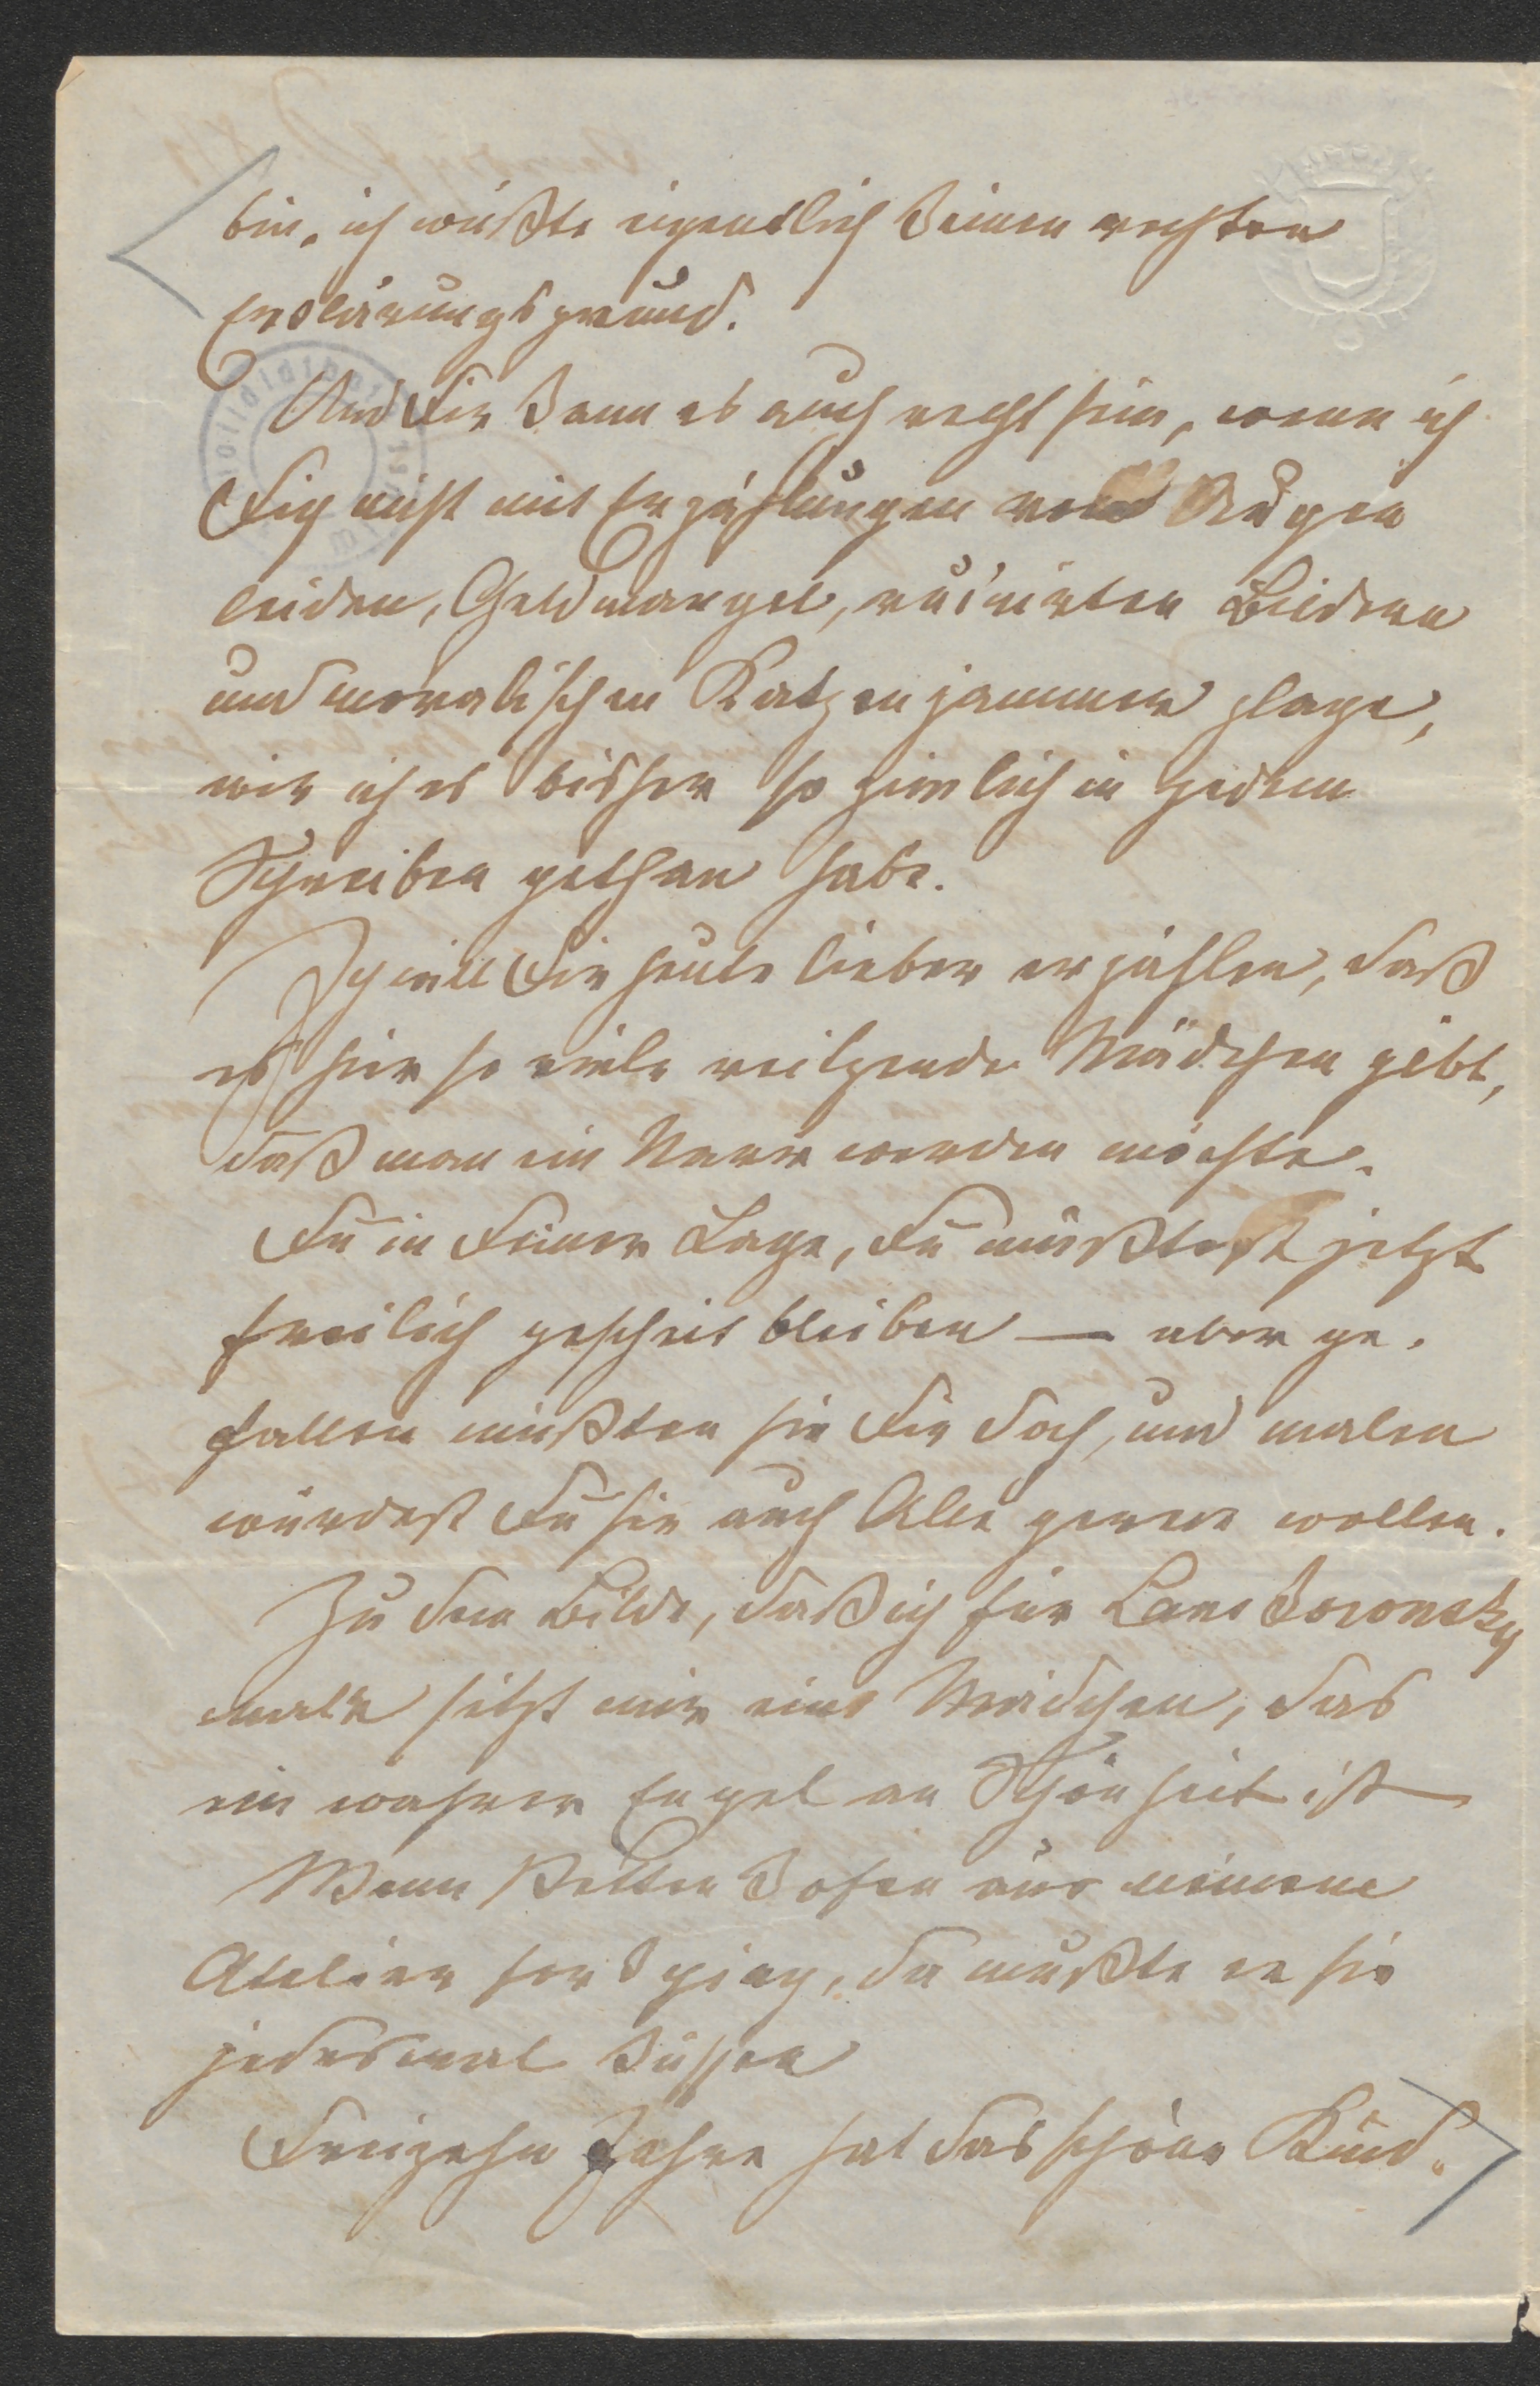 bin, ich wüßte eigentlich keinen rechten
Erklärungsgrund.
Und Dir kann es auch recht sein, wenn ich
Dich nicht mit Erzählungen von Augen
leiden, Geldmangel, ruinirten Bildern
und moralischen Katzenjammer plage,
wie ich es bisher so zimlich in jedem
Schreiben gethan habe.
Ich will Dir heute lieber erzählen, daß
es hier so viele reitzende Mädchen gibt,
daß man ein Narr werden möchte.
Du in Deiner Lage, Du müßtest jetzt
freilich gescheit bleiben — aber ge-
fallen müßten sie Dir doch, und malen
würdest Du sie auch Alle gerne wollen.
Zu dem Bilde, daß ich für Lanckoronsky
male sitzt mir eine Mädchen, das
ein wahrer Engel an Schönheit ist
Wenn Pettenkofen aus meinem
Atelier fort ging, da mußte er sie
jedesmal küssen
Dreizehn Jahre hat das schöne Kind.